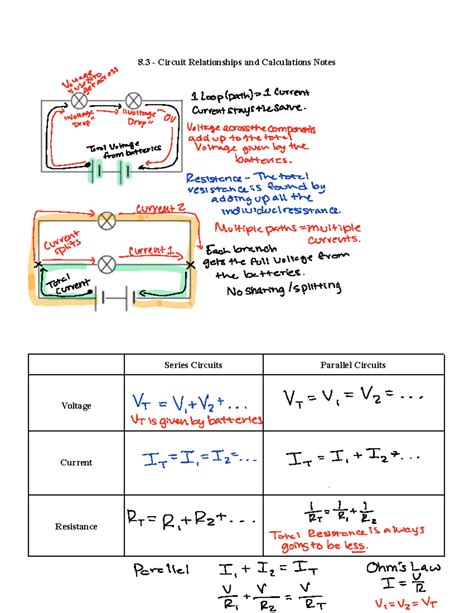 8.3 - Circuit Relationships and Calculations Notes
Voltage
"Voltage
Drop"
"Voltage
Drop"
0V
Total Voltage
from batteries
1 Loop (path) = 1 Current
Current stays the same.
Voltage across the components
add up to the total
Voltage given by the
batteries.
Resistance - The total
resistance is found by
adding up all the
individual resistance.
Current 2
Current
splits
Current 1
Total
Current
Multiple paths = multiple
currents.
Each branch
gets the full voltage from
the batteries.
No sharing/splitting
Series Circuits
Parallel Circuits
Voltage
V_T = V_1 + V_2 + ...
V_T is given by batteries
V_T = V_1 = V_2 = ...
Current
I_T = I_1 = I_2 = ...
I_T = I_1 + I_2 + ...
Resistance
R_T = R_1 + R_2 + ...
1/R_T = 1/R_1 + 1/R_2
Total Resistance is always
going to be less.
Parallel I_1 + I_2 = I_T
V/R_1 + V/R_2 = V/R_T
Ohm's Law
I = V/R
V_1 = V_2 = V_T